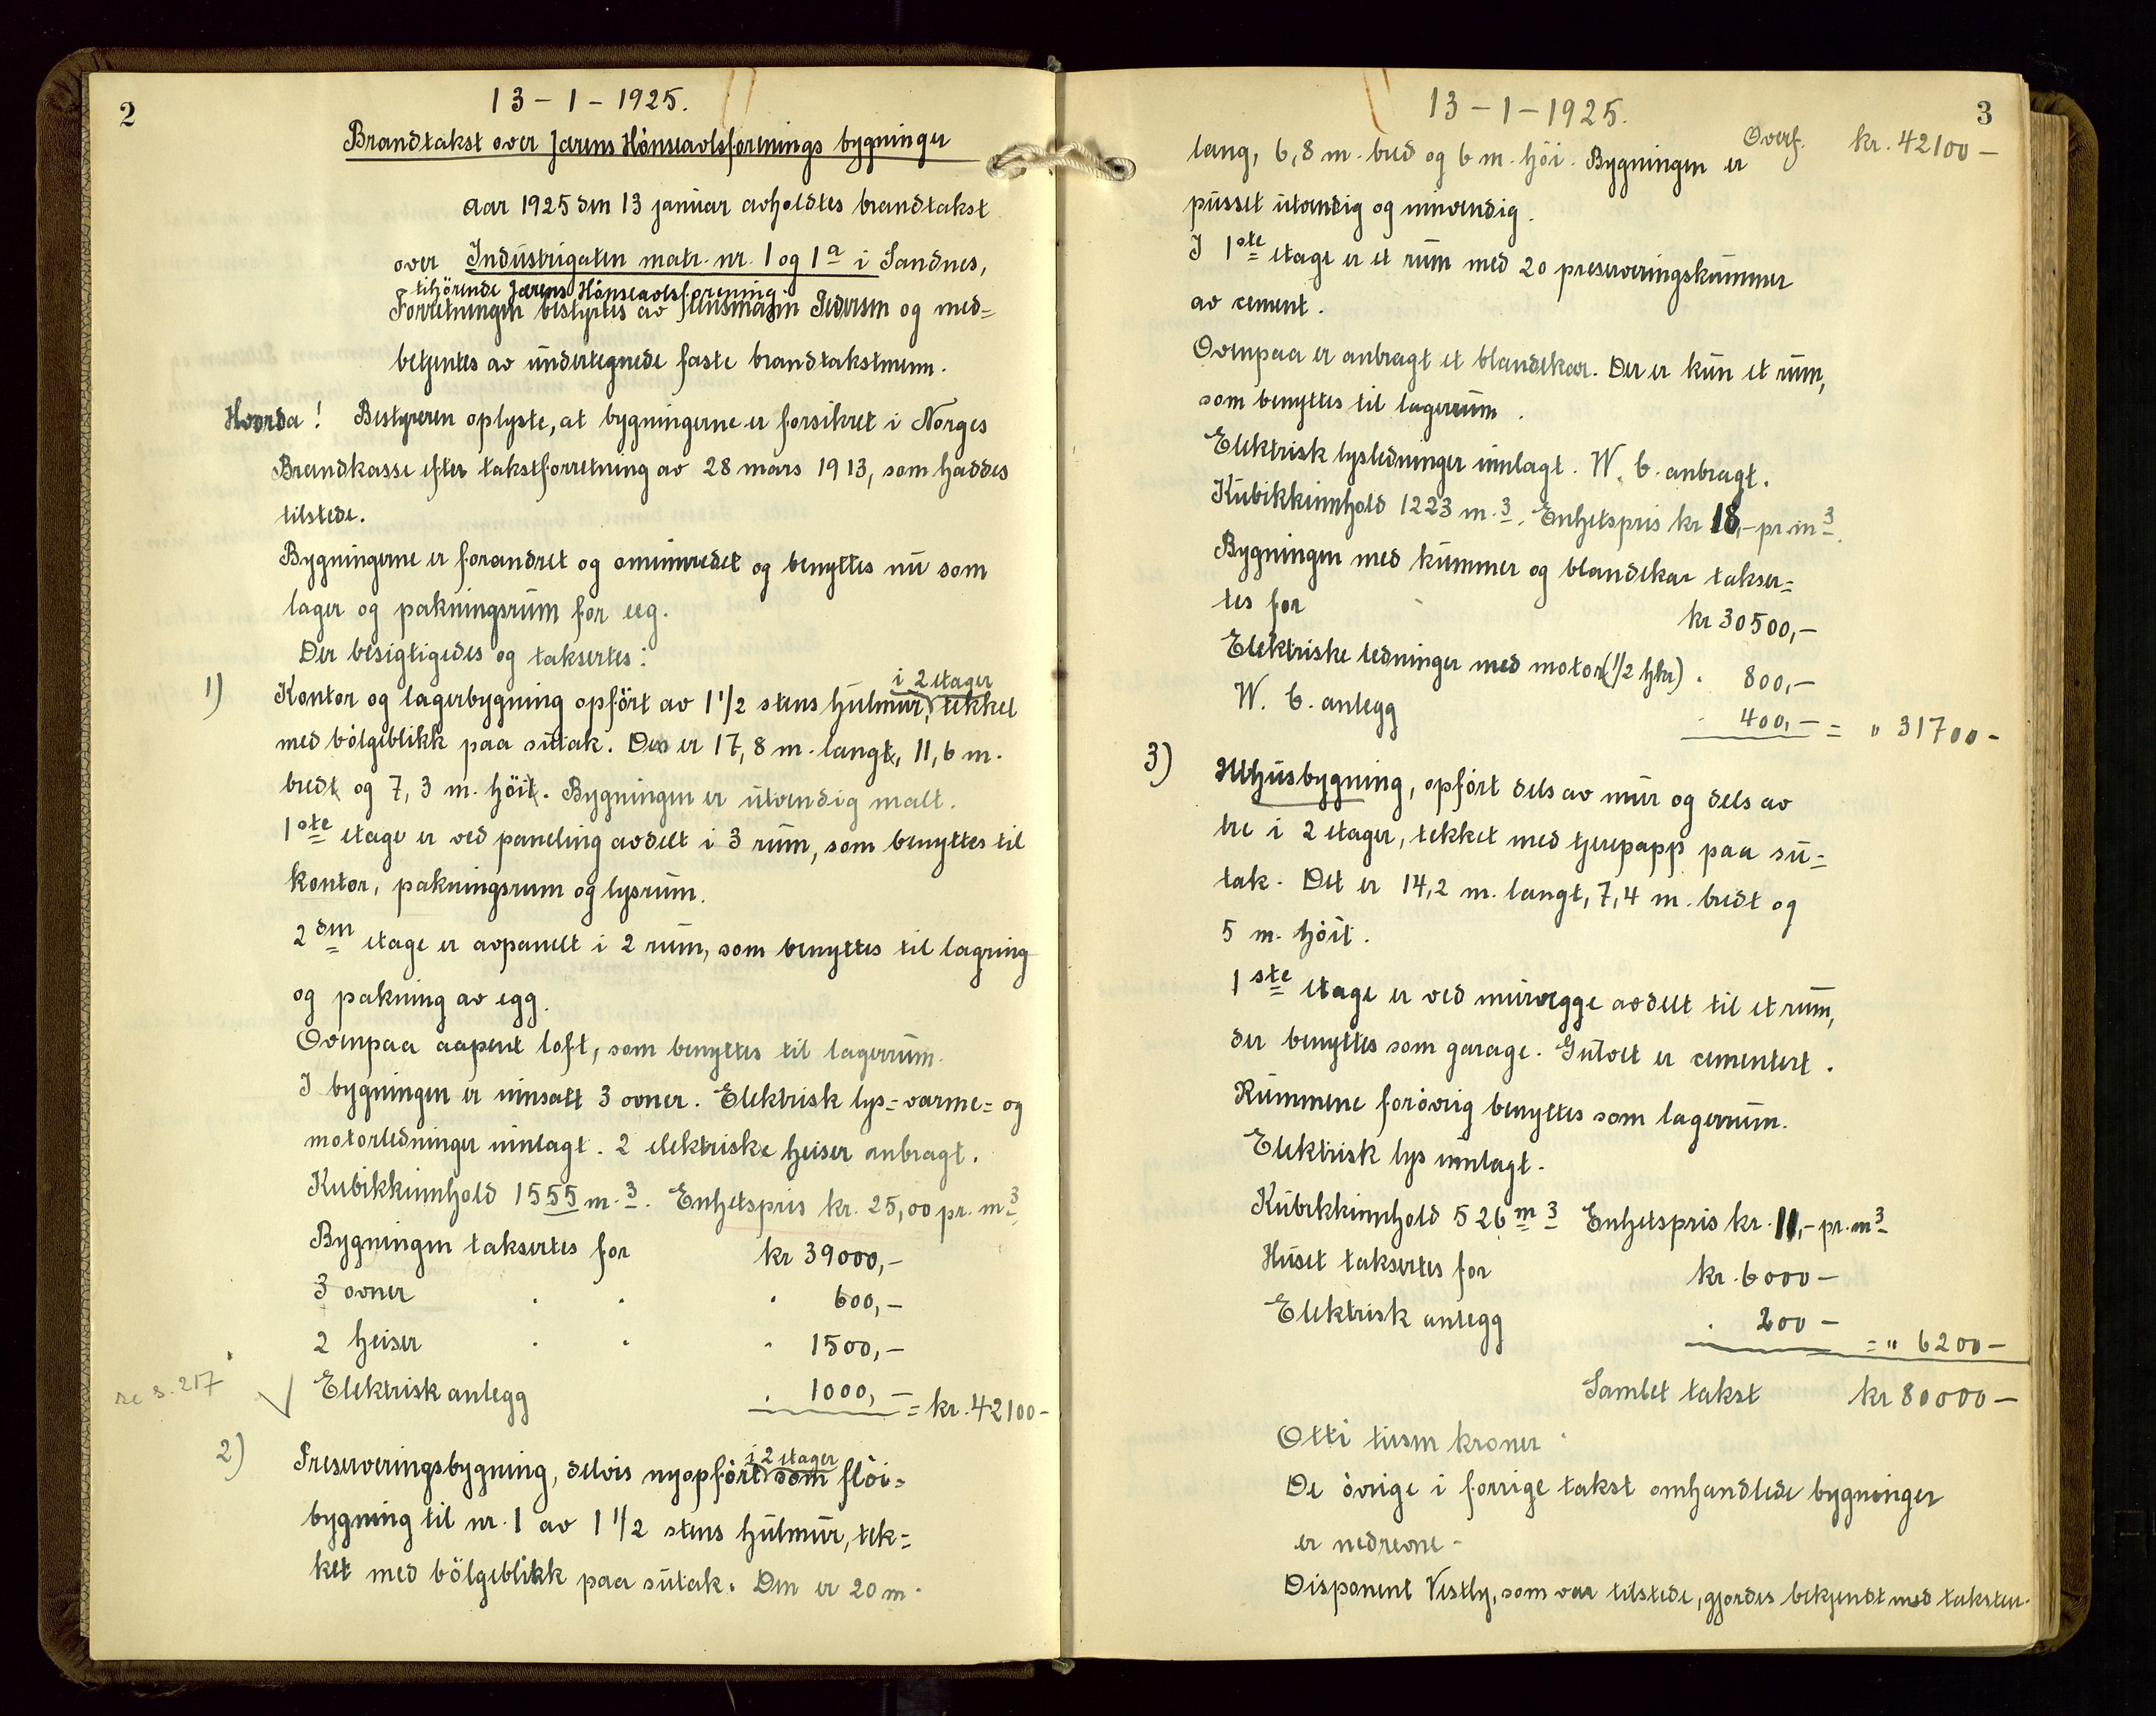 2
13 - 1 - 1925.
Brandtakst over Jærens Hönseavlsforenings bygninger
aar 1925 den 13 januar avholdtes brandtakst
over Industrigaten matr. nr. 1 og 1a i Sandnes,
tilhörende Jærens Hönseavlsforening.
Forretningen bestyrtes av lensmann Pedersen og med=
betjentes av undertegnede faste brandtakstmenn.
Hvorda! Bestyreren oplyste, at bygningerne er forsikret i Norges
Brandkasse efter takstforretning av 28 mars 1913, som haddes
tilstede.
Bygningerne er forandret og ominnredet og benyttes nu som
lager og pakningsrum for egg.
Der besigtigedes og taksertes:
i 2 etager
1) Kontor og lagerbygning opfört av 1 1/2 stens hulmur, tekket
med bölgeblikk paa sutak. Den er 17,8 m. langt, 11,6 m.
bredt og 7,3 m. höit. Bygningen er utvendig malt.
1ste etage er ved paneling avdelt i 3 rum, som benyttes til
kontor, pakningsrum og lysrum.
2den etage er avpanelt i 2 rum, som benyttes til lagring
og pakning av egg.
Ovenpaa aapent loft, som benyttes til lagerrum.
I bygningen er innsatt 3 ovner. Elektrisk lys= varme= og
motorledninger innlagt. 2 elektriske heiser anbragt.
Kubikkinnhold 1555 m.3. Enhetspris kr. 25,00 pr. m3
Bygningen taksertes for kr 39000,-
3 ovner . . . 600,-
2 heiser . . . 1500,-
se s. 217 √ Elektrisk anlegg . 1000,- = kr. 42100-
i 2 etager
2) Preserveringsbygning, delvis nyopfört som flöi=
bygning til nr. 1 av 1 1/2 stens hulmur, tek=
ket med bölgeblikk paa sutak. Den er 20 m.
3
13 - 1 - 1925.
Overf. kr. 42100-
lang, 6,8 m. bred og 6 m. höi. Bygningen er
pusset utvendig og innvendig.
I 1ste etage er et rum med 20 preserveringskummer
av cement.
Ovenpaa er anbragt et blandekar. Der er kun et rum,
som benyttes til lagerrum.
Elektrisk lysledninger innlagt. W. C. anbragt.
Kubikkinnhold 1223 m.3. Enhetspris kr 18,- pr. m3.
Bygningen med kummer og blandekar takser=
tes for kr 30500,-
Elektriske ledninger med motor (1/2 hkr) . 800,-
W. C. anlegg . 400,- = " 31700-
3) Uthusbygning, opfört dels av mur og dels av
tre i 2 etager, tekket med tjerepapp paa su=
tak. Det er 14,2 m. langt, 7,4 m. bredt og
5 m. höit.
1ste etage er ved murvegge avdelt til et rum,
der benyttes som garage. Gulvet er cementert.
Rummene forövrig benyttes som lagerrum.
Elektrisk lys innlagt.
Kubikkinnhold 526 m3 Enhetspris kr. 11,- pr. m3
Huset taksertes for kr. 6000-
Elektrisk anlegg . 200- = " 6200-
Samlet takst kr 80000-
Otti tusen kroner
De övrige i forrige takst omhandlede bygninger
er nedrevne-
Disponent Vestly, som var tilstede, gjordes bekjendt med taksten.